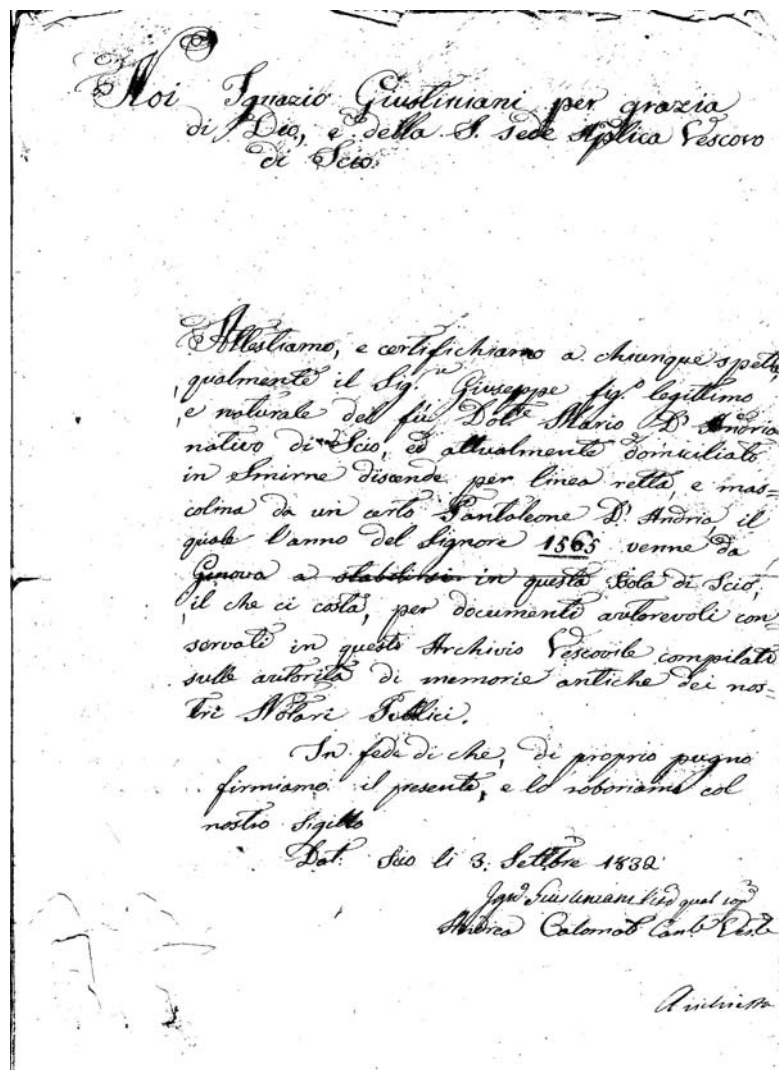 Noi Ignazio Giustiniani per grazia
di Dio, e della S. sede Aplica Vescovo
di Scio.
Attestiamo, e certifichiamo a chiunque spetta
qualmente il Sig.re Giuseppe fig.o legittimo
e naturale del fù Dot.e Mario D'Andria
nativo di Scio, ed attualmente domiciliato
in Smirne discende per linea retta, e mas=
colina da un certo Pantaleone D'Andria, il
quale l'anno del Signore 1565 venne da
Genova a stabilirsi in questa Isola di Scio,
il che ci costa, per documenti autorevoli con
servati in questo Archivio Vescovile compilati
sulle autorità di memorie antiche dei nos=
tri Notari Publici.
In fede di che, di proprio pugno
firmiamo il presente, e lo roboriamo col
nostro Sigillo
Dat. Scio li 3. Settbre 1832
Giustiniani qual
Andrea Calamati Canc.